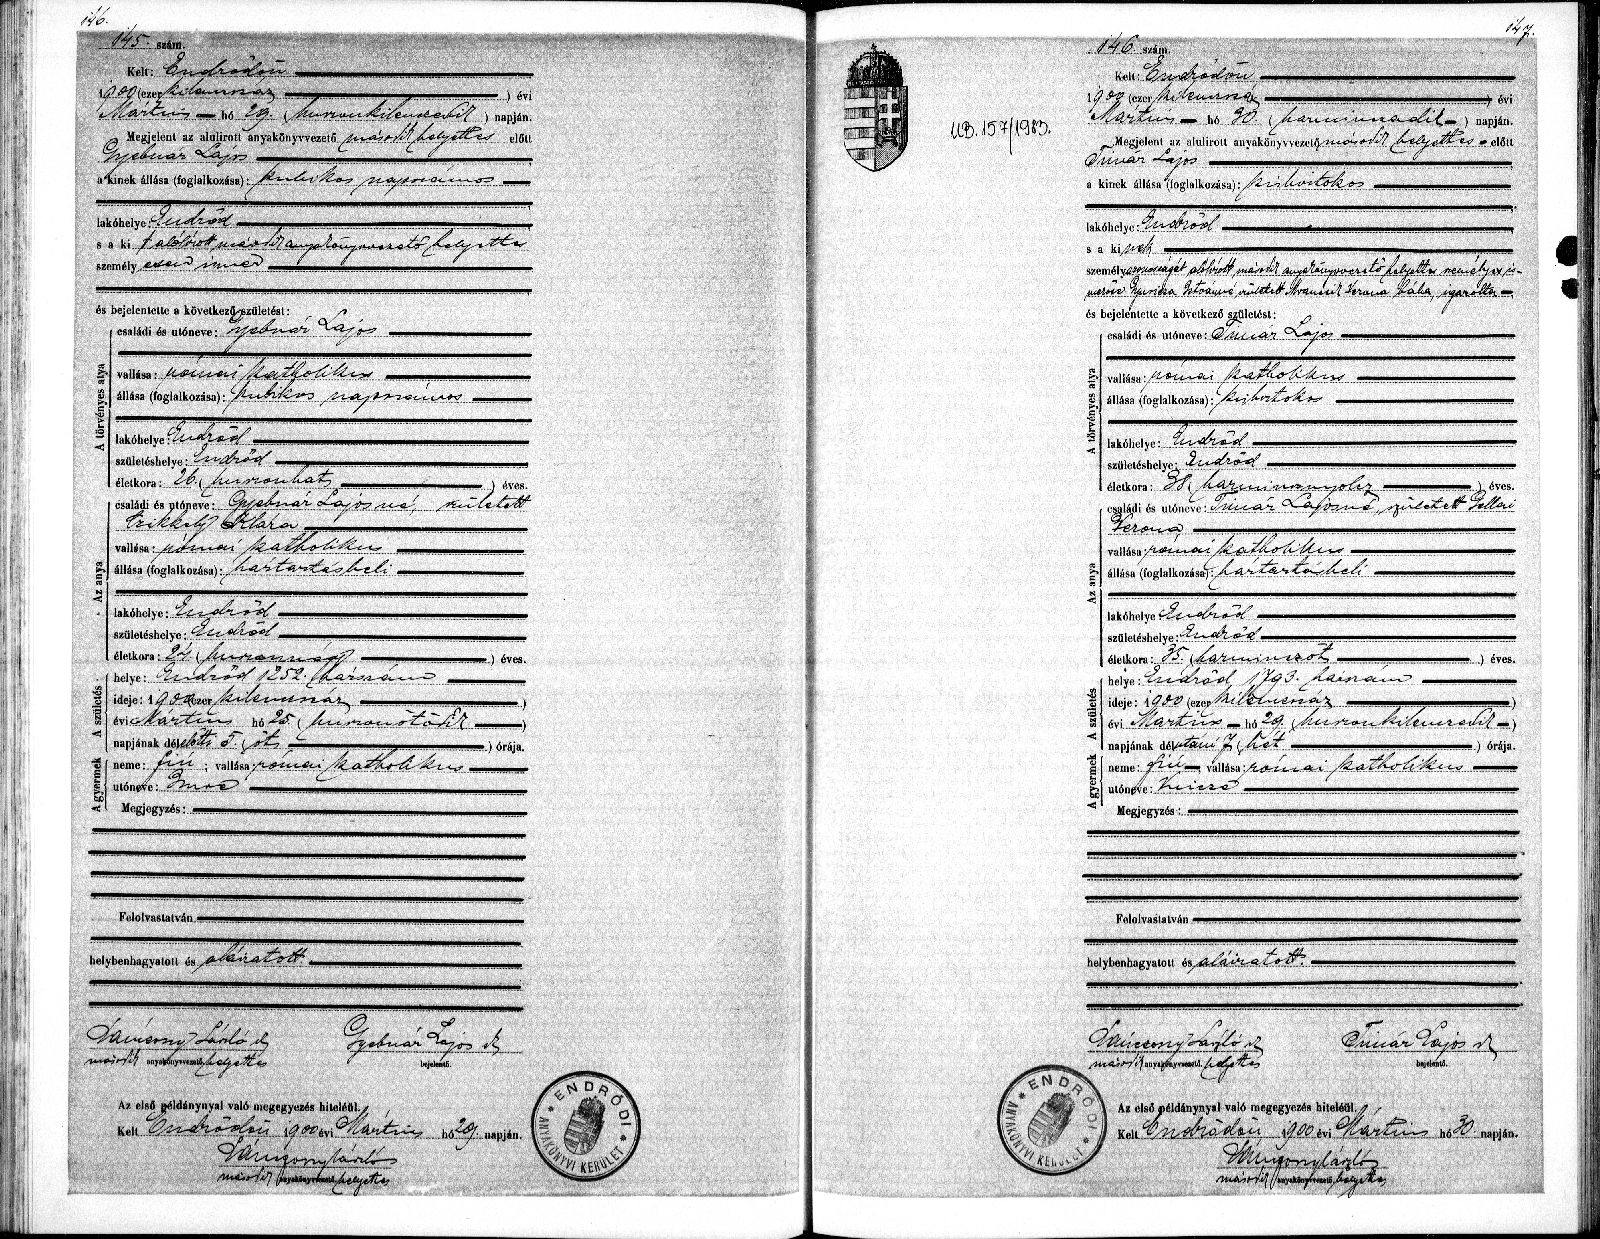 146.
145. szám.
Kelt: Endrődön
1900 (ezer kilencszáz) évi
Március hó 29. (huszonkilencedik) napján.
Megjelent az alulirott anyakönyvvezető második helyettes előtt
Gyebnár Lajos
a kinek állása (foglalkozása): kubikos napszámos
lakóhelye: Endrőd
s a ki t alólirott második anyakönyvvezető helyettes
személyesen ismer
és bejelentette a következő születést:
A törvényes atya
családi és utóneve: Gyebnár Lajos
vallása: római katholikus
állása (foglalkozása): kubikos napszámos
lakóhelye: Endrőd
születéshelye: Endrőd
életkora: 26. (huszonhat) éves.
Az anya
családi és utóneve: Gyebnár Lajosné, született
Czikkely Klára
vallása: római katholikus
állása (foglalkozása): háztartásbeli
lakóhelye: Endrőd
születéshelye: Endrőd
életkora: 24. (huszonnégy) éves.
A születés
helye: Endrőd 1252. házszám
ideje: 1900 (ezer kilencszáz)
évi Március hó 25. (huszonötödik)
napjának délelőtti 5. (öt) órája.
A gyermek
neme: fiú; vallása: római katholikus
utóneve: Imre
Megjegyzés:
Felolvastatván
helybenhagyatott és aláiratott.
László Gyebnár Lajos
második anyakönyvvezető, helyettes bejelentő.
Az első példánynyal való megegyezés hiteléül.
Kelt Endrődön 1900 évi Március hó 29. napján.
László
második anyakönyvvezető, helyettes
ENDRŐDI
ANYAKÖNYVI KERÜLET
UB. 157/1983.
147.
146. szám.
Kelt: Endrődön
1900 (ezer kilencszáz) évi
Március hó 30. (harminczadik) napján.
Megjelent az alulirott anyakönyvvezető második helyettes előtt
Timár Lajos
a kinek állása (foglalkozása): kisbirtokos
lakóhelye: Endrőd
s a ki nek
személyazonosságát alólirott második anyakönyvvezető helyettes személyes is-
merőse Istvánné, született Verona bába, igazolta
és bejelentette a következő születést:
A törvényes atya
családi és utóneve: Timár Lajos
vallása: római katholikus
állása (foglalkozása): kisbirtokos
lakóhelye: Endrőd
születéshelye: Endrőd
életkora: 38. (harmincznyolcz) éves.
Az anya
családi és utóneve: Timár Lajosné, született Gellai
Verona
vallása: római katholikus
állása (foglalkozása): háztartásbeli
lakóhelye: Endrőd
születéshelye: Endrőd
életkora: 35. (harminczöt) éves.
A születés
helye: Endrőd 1793. házszám
ideje: 1900 (ezer kilencszáz)
évi Március hó 29. (huszonkilenczedik)
napjának délutáni 7 (hét) órája.
A gyermek
neme: fiú; vallása: római katholikus
utóneve: Vincze
Megjegyzés:
Felolvastatván
helybenhagyatott és aláiratott.
László Timár Lajos
második anyakönyvvezető, helyettes bejelentő.
Az első példánynyal való megegyezés hiteléül.
Kelt Endrődön 1900 évi Március hó 30. napján.
László
második anyakönyvvezető, helyettes
ENDRŐDI
ANYAKÖNYVI KERÜLET